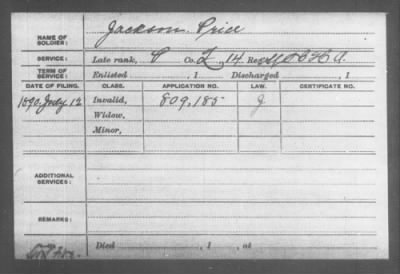 NAME OF SOLDIER: Jackson Price
SERVICE: Late rank, Co. 14 Reg't
TERM OF SERVICE: Enlisted , 1 Discharged , 1
DATE OF FILING. CLASS. APPLICATION NO. LAW. CERTIFICATE NO.
1890, July 12 Invalid, 809,185 J
Widow,
Minor,
ADDITIONAL SERVICES:
REMARKS:
Died , 1 , at